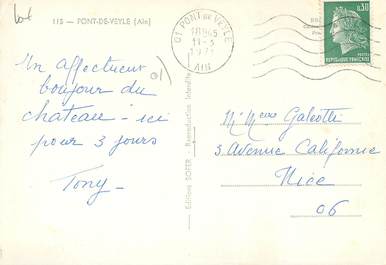 lot
115 — PONT-DE-VEYLE (Ain)
01 PONT DE VEYLE
18H45
11-5
AIN
0,30
REPUBLIQUE FRANÇAISE
POSTES
01)
Un affectueux
bonjour du
chateau - ici
pour 3 jours
Tony -
Editions SOFER - Reproduction Interdite
M. Mme Galeotti
3 Avenue Californie
Nice
06